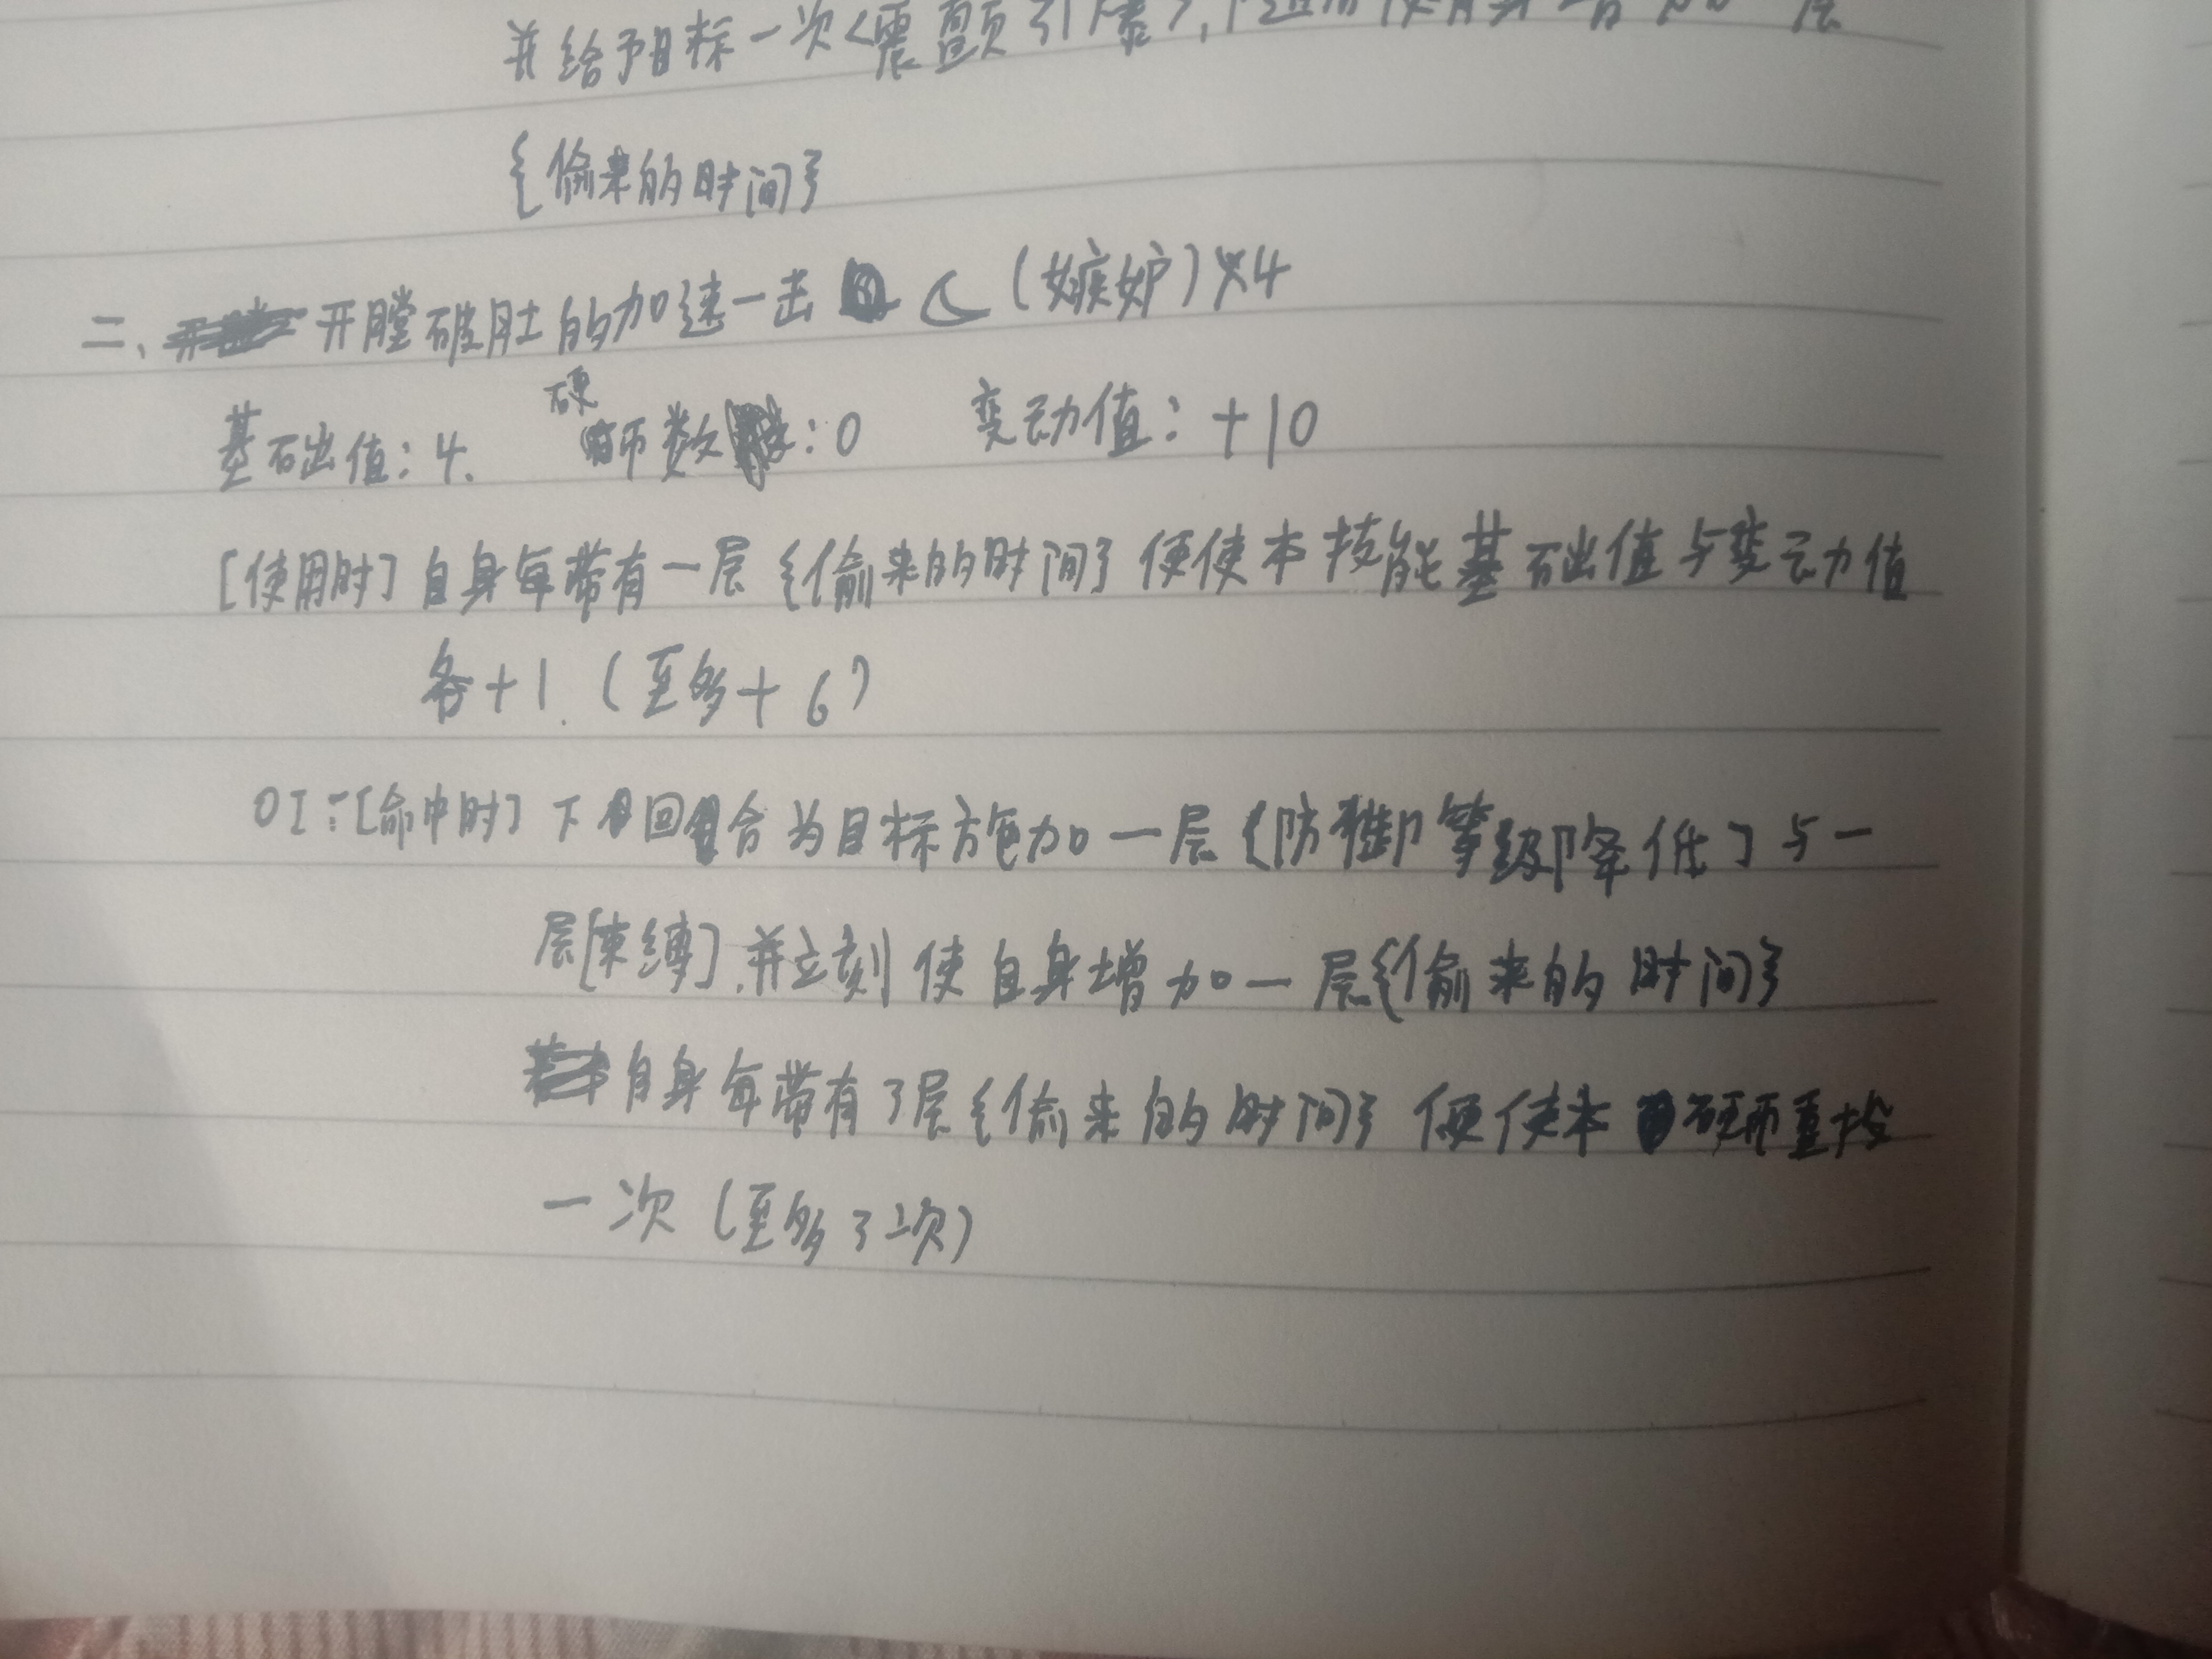 并给予目标一次<震颤引爆>,
{偷来的时间}
二、开膛破肚的加速一击 (嫉妒)×4
基础值:4. 硬币数:0 变动值:+10
[使用时]自身每带有一层{偷来的时间}便使本技能基础值与变动值
各+1.(至多+6)
01:[命中时]下回合为目标施加一层{防御等级降低]与一
层[束缚],并立刻使自身增加一层{偷来的时间}
自身每带有3层{偷来的时间}便使本硬币重投
一次(至多3次)